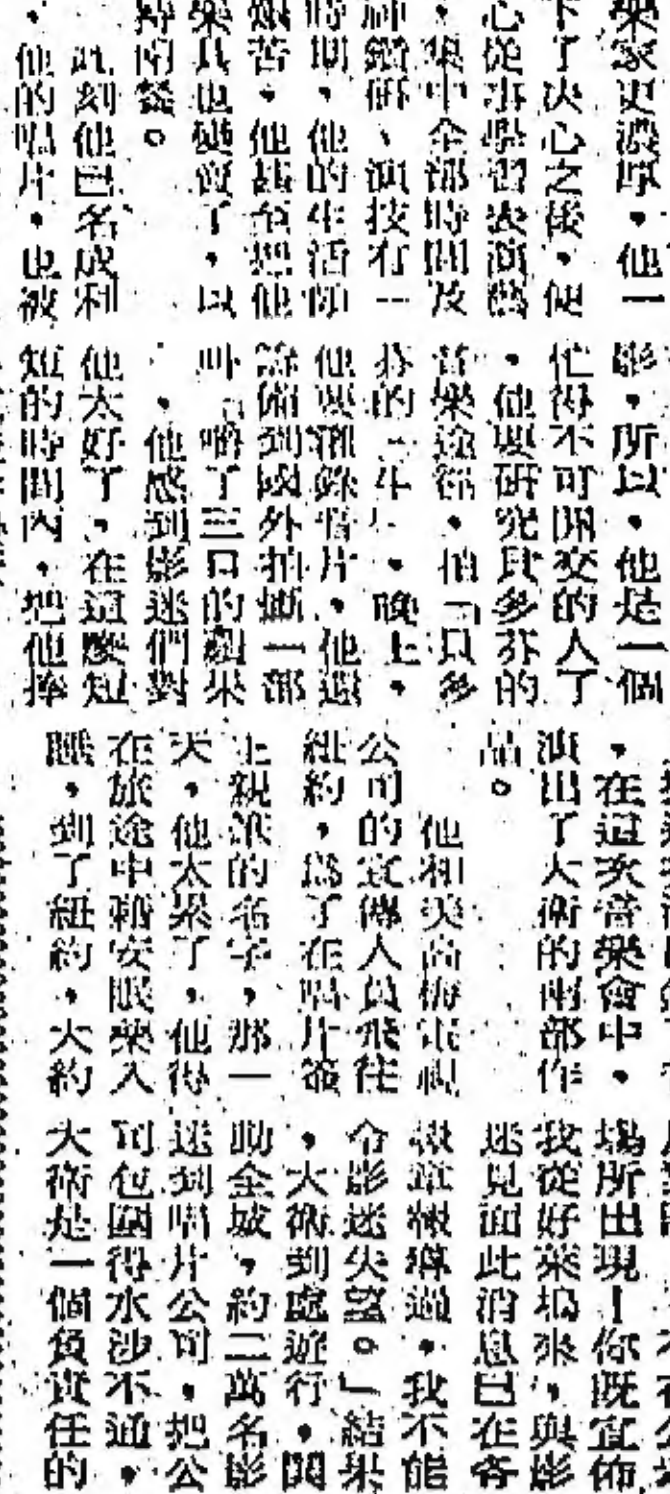 樂家更濃厚，他一
下了決心之後，便
心從事學習表演藝
，集中全部時間及
神鑽研、演技有一
時期，他的生活頗
艱苦，他甚至想他
樂具也變賣了，以
歸兩餐。
此刻他已名成利
，他的唱片，也被
影，所以，他是一個
忙得不可開交的人了
，他要研究貝多芬的
音樂途徑，拍「貝多
芬的一生」，晚上，
他要灌錄唱片，他還
籌備到國外拍攝一部
叫「嚼了三口的蘋果
」，他感到影迷們對
他太好了，在這麼短
短的時間內，把他捧
，在這次音樂會中，
演出了大衛的兩部作
品。
他和美高梅電視
公司的宣傳人員飛往
紐約，為了在唱片簽
上親筆的名字，那一
天，他太累了，他得
在旅途中藉安眠藥入
睡，到了紐約，大約
場所出現！你既宣佈
我從好萊塢來，與影
迷見面此消息已在各
報章報導過，我不能
令影迷失望。」結果
，大衛到處遊行，鬨
動全城，約二萬名影
迷到唱片公司，把公
司包圍得水沙不通，
大衛是一個負責任的